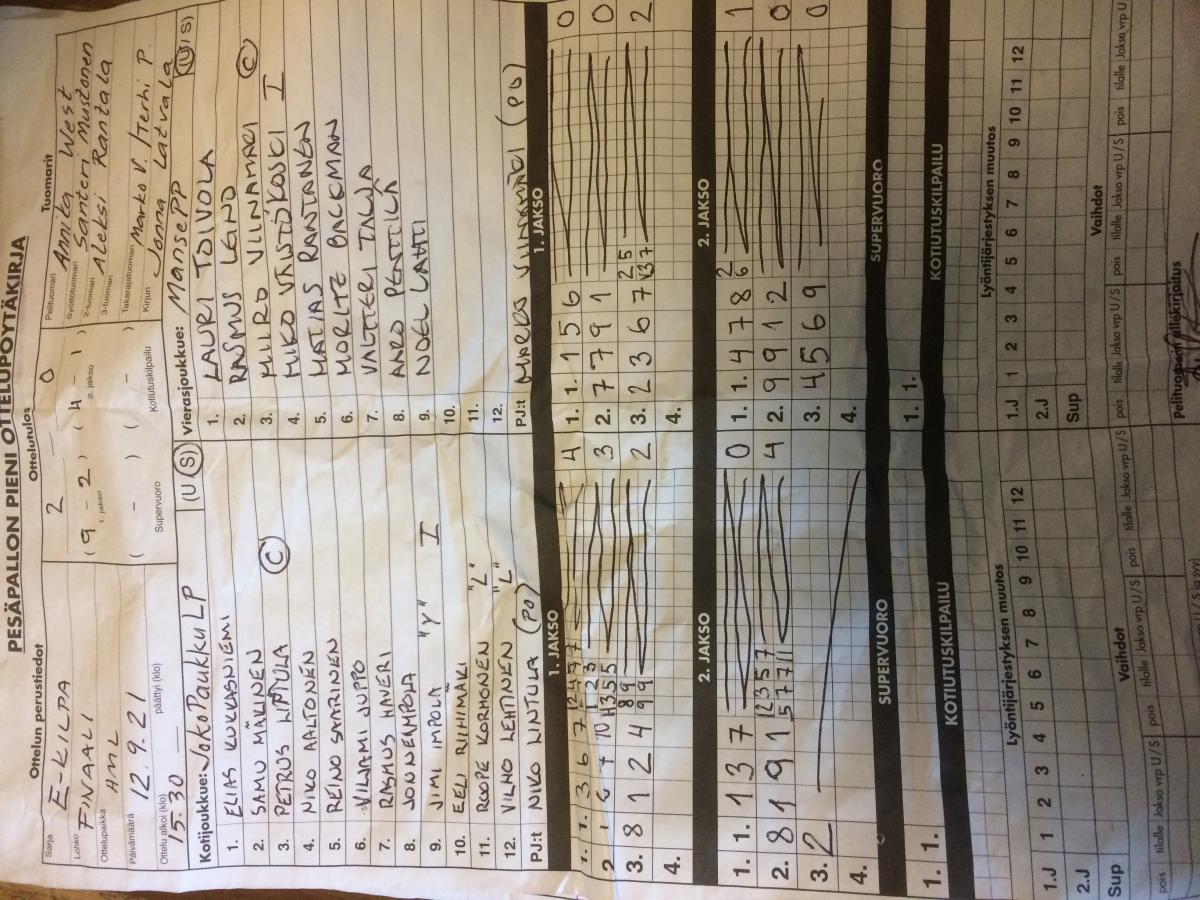 PESÄPALLON PIENI OTTELUPÖYTÄKIRJA
Ottelun perustiedot
Sarja
E-KILPA
Lohko
FINAALI
Ottelupaikka
HML
Päivämäärä
12.9.21
Ottelu alkoi (klo)
15.30
päättyi (klo)
Ottelutulos
2 0
( 9 - 2 ) ( 4 - 1 )
1. jakso 2. jakso
( - ) ( - )
Supervuoro Kotiutuskilpailu
Tuomarit
Pelituomari Annita West
Syöttötuomari Santeri Mustonen
2-tuomari Aleksi Rantala
3-tuomari
Takarajatuomari Marko V. / Terhi P.
Kirjuri Jonna Latvala
Kotijoukkue: JokoPaukku LP (U/S)
1. ELIAS KUKKASNIEMI
2. SAMU MÄKINEN
3. PETRUS LIPTULA C
4. NIKO AALTONEN
5. REINO SAARINEN
6. VILJAMI JUPPO
7. RASMUS HAVERI
8. JONNE IMPOLA
9. JIMI IMPOLA "Y" I
10. EELI RIIHIMÄKI
11. ROOPE KORHONEN "L"
12. VILHO LEHTINEN "L"
PJ:t NIKO LINTULA (PO)
Vierasjoukkue: MansePP (U/S)
1. LAURI TOIVOLA
2. RASMUS LEINO
3. MIIRO VIINAMÄKI C
4. MIKO VÄLIKOSKI I
5. MATIAS RANTANEN
6. MORITZ BACKMAN
7. VALTTERI TALJA
8. AARO PENTTILÄ
9. NOEL LAHTI
10.
11.
12.
PJ:t MARKO VIINAMÄKI (PO)
1. JAKSO
1. 1. 3 6 7 4
2. 3
3. 8 1 2 4 2
4.
1. JAKSO
1. 1. 1 5 6 0
2. 7 7 9 1 0
3. 2 3 6 7 2
4.
2. JAKSO
1. 1. 1 3 7 0
2. 8 1 9 1 4
3. 2
4.
2. JAKSO
1. 1. 4 7 8 1
2. 9 9 1 2 0
3. 4 5 6 9 0
4.
SUPERVUORO
1. 1.
SUPERVUORO
1. 1.
KOTIUTUSKILPAILU
KOTIUTUSKILPAILU
Lyöntijärjestyksen muutos
1.J 1 2 3 4 5 6 7 8 9 10 11 12
2.J
Sup
Lyöntijärjestyksen muutos
1.J 1 2 3 4 5 6 7 8 9 10 11 12
2.J
Sup
Vaihdot
pois tilalle Jakso vrp U/S pois tilalle Jakso vrp U/S
Vaihdot
pois tilalle Jakso vrp U/S pois tilalle Jakso vrp U/S
Pelituomarin allekirjoitus